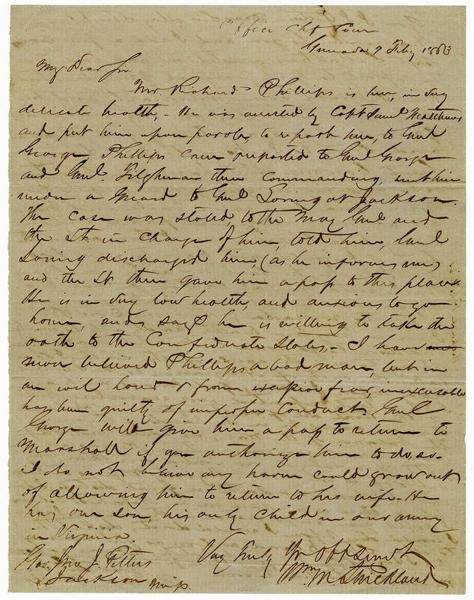 Office Chf Com
Grenada 9 Feby 1863
My Dear Sir
Mr Richard Phillips is here, in very
delicate health. He was arrested by Capt Saml Matthews
and put him upon parole, to report here, to Genl
George Phillips came reported to Genl George
and Genl Tilghman then commanding, sent him
under a Guard to Genl Loring at Jackson.
The case was stated to the Maj Genl and
the Lt in charge of him, told him, Genl
Loring discharged him, (as he informs me)
and the Lt then gave him a pass to this place.
He is in very low health, and anxious to go
home, and says he is willing to take the
oath to the Confederate States - I have
never believed Phillips a bad man, but in
an evil hour & from fear, inexcusable
has been guilty of improper conduct. Genl
George will give him a pass to return to
Marshall if you authorize him to do so.
I do not believe any harm could grow out
of allowing him to return to his wife. He
has one son, his only child in our army
in Virginia.
Very truly Yr obt Servt
Wm M Strickland
Hon. Jno. J. Pettus
Jackson Miss.